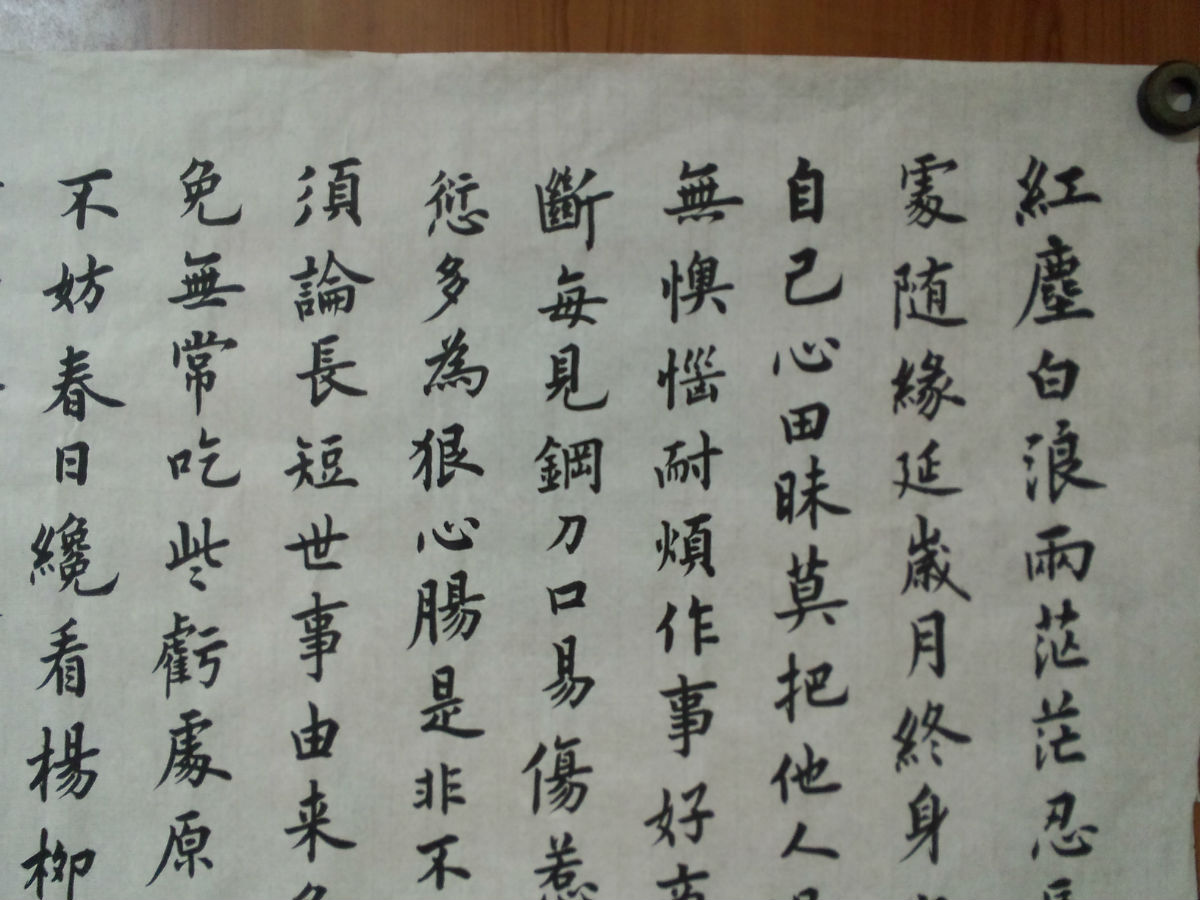 紅塵白浪兩茫茫忍
處随緣延歲月終身
自己心田昧莫把他人
無懊惱耐煩作事好
斷每見鋼刀口易傷惹
愆多為狠心腸是非不
須論長短世事由来
免無常吃些虧處原
不妨春日纔看楊柳